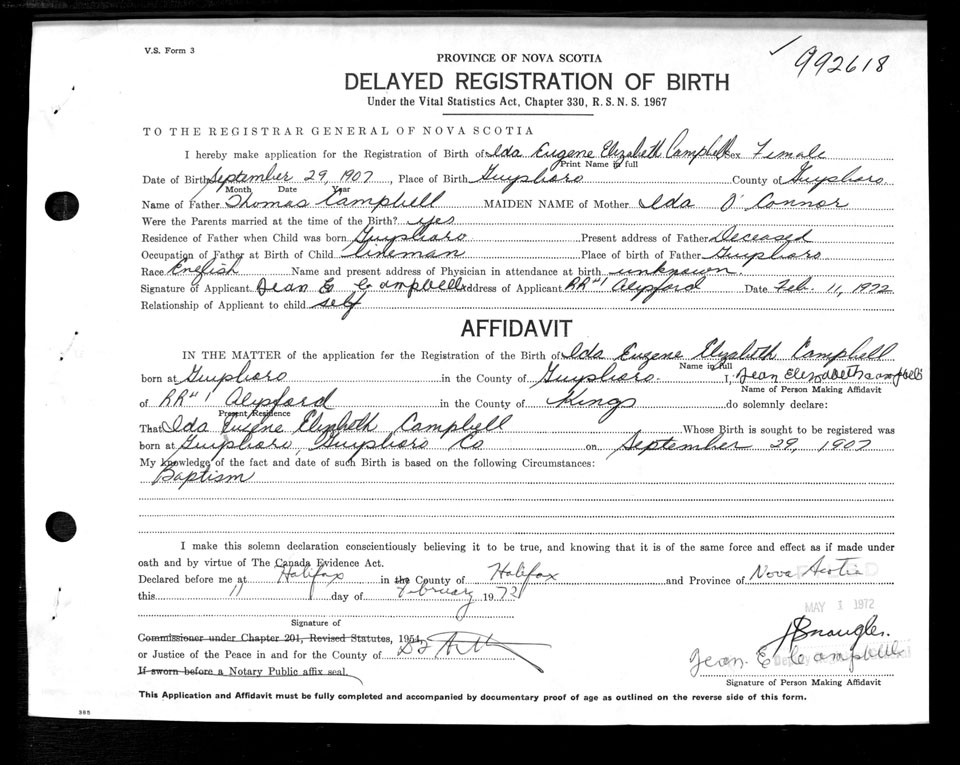 V.S. Form 3
992618
PROVINCE OF NOVA SCOTIA
DELAYED REGISTRATION OF BIRTH
Under the Vital Statistics Act, Chapter 330, R. S. N. S. 1967
TO THE REGISTRAR GENERAL OF NOVA SCOTIA
I hereby make application for the Registration of Birth of Ida Eugene Elizabeth Campbell Sex Female
Print Name in full
Date of Birth September 29, 1907, Place of Birth Guysboro County of Guysboro
Month Date Year
Name of Father Thomas Campbell MAIDEN NAME of Mother Ida O'Connor
Were the Parents married at the time of the Birth? yes
Residence of Father when Child was born Guysboro Present address of Father Deceased
Occupation of Father at Birth of Child lineman Place of birth of Father Guysboro
Race English Name and present address of Physician in attendance at birth unknown.
Signature of Applicant Jean E Campbell Address of Applicant RR#1 Alysford Date Feb. 11, 1972
Relationship of Applicant to child self
AFFIDAVIT
IN THE MATTER of the application for the Registration of the Birth of Ida Eugene Elizabeth Campbell
Name in full
born at Guysboro in the County of Guysboro. I, Jean Elizabeth Campbell
Name of Person Making Affidavit
of RR#1 Alysford in the County of Kings do solemnly declare:
Present Residence
That Ida Eugene Elizabeth Campbell Whose Birth is sought to be registered was
born at Guysboro, Guysboro Co on September 29, 1907
My knowledge of the fact and date of such Birth is based on the following Circumstances:
Baptism
I make this solemn declaration conscientiously believing it to be true, and knowing that it is of the same force and effect as if made under
oath and by virtue of The Canada Evidence Act.
Declared before me at Halifax in the County of Halifax and Province of Nova Scotia
this 11 day of February 1972
MAY 1 1972
Signature of
Commissioner under Chapter 201, Revised Statutes, 1954,
or Justice of the Peace in and for the County of
Jean E Campbell
If sworn before a Notary Public affix seal.
Signature of Person Making Affidavit
This Application and Affidavit must be fully completed and accompanied by documentary proof of age as outlined on the reverse side of this form.